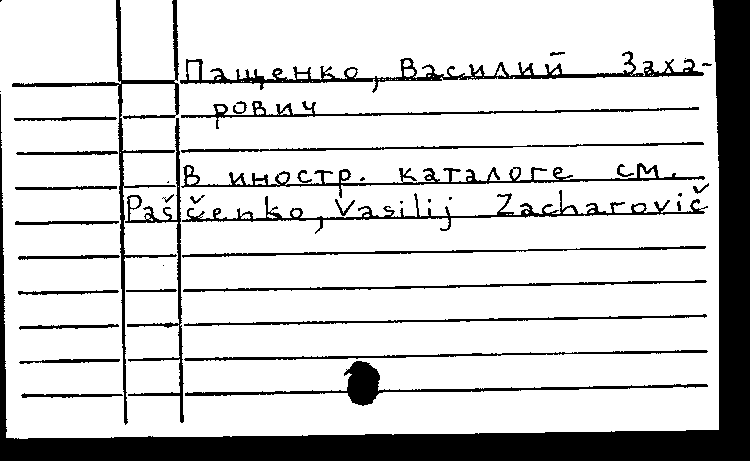 Пащенко, Василий Заха-
рович
В иностр. каталоге см.
Paščenko, Vasilij Zacharovič